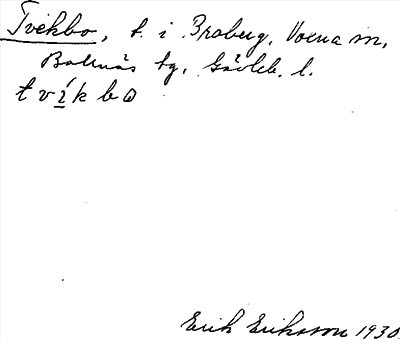 Tvekbo, t. i Broberg, Voxna sn,
Bollnäs tg, Gävleb. l.
t v í k b ω
Erik Eriksson 1930.